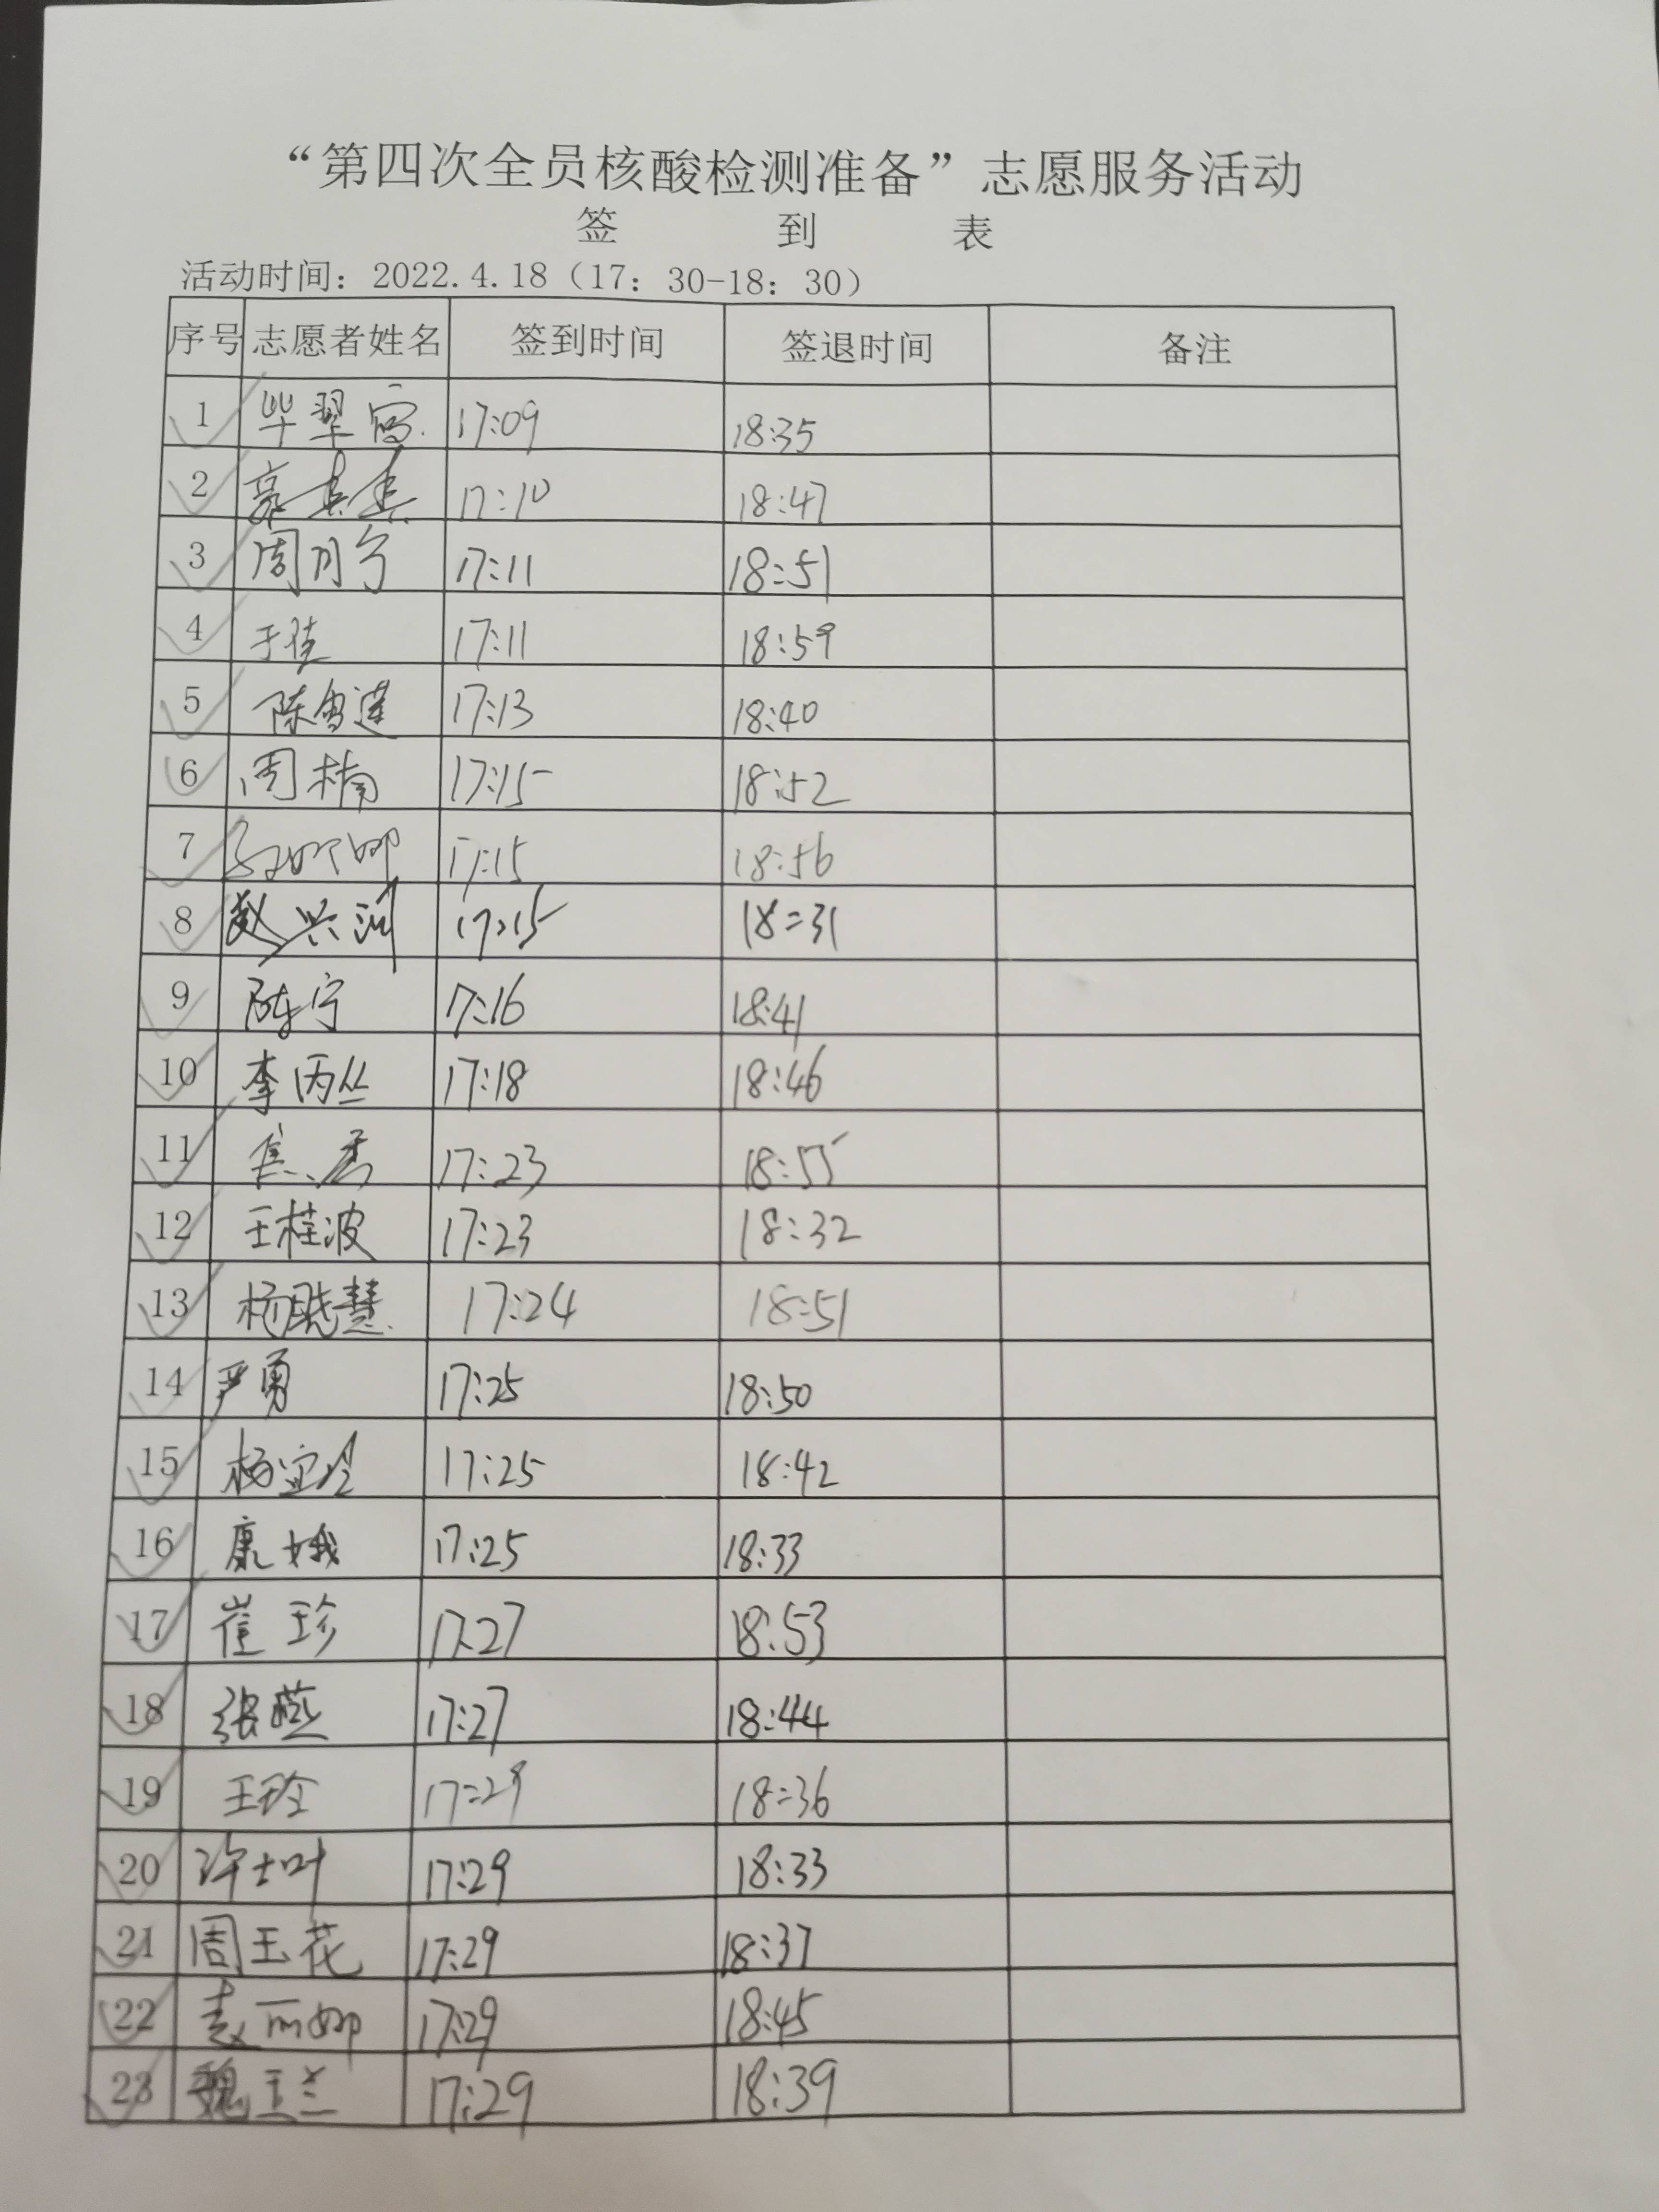 “第四次全员核酸检测准备”志愿服务活动
签 到 表
活动时间：2022.4.18（17：30-18：30）
序号 志愿者姓名 签到时间 签退时间 备注
1 毕翠 17:09 18:35
2 17:10 18:47
3 周月宁 17:11 18:51
4 于佳 17:11 18:59
5 陈雪莲 17:13 18:40
6 周楠 17:15 18:52
7 17:15 18:56
8 赵兴 17:15 18:31
9 陈宁 17:16 18:41
10 李丙丛 17:18 18:46
11 焦 17:23 18:55
12 王桂波 17:23 18:32
13 杨聪慧 17:24 18:51
14 严勇 17:25 18:50
15 杨宜玲 17:25 18:42
16 康娥 17:25 18:33
17 崔珍 17:27 18:53
18 张燕 17:27 18:44
19 王玲 17:29 18:36
20 许士叶 17:29 18:33
21 周玉花 17:29 18:37
22 袁丽娜 17:29 18:45
23 魏玉兰 17:29 18:39